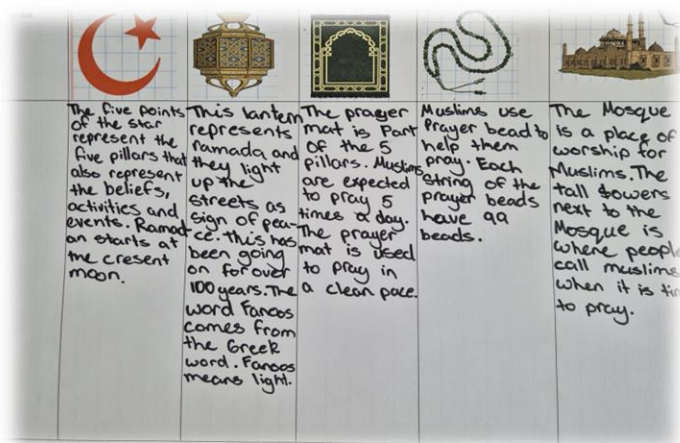 The five points
of the star
represent the
five pillars that
also represent
the beliefs,
activities and
events. Ramad
an starts at
the cresent
moon.
This lantern
represents
ramada and
they light
up the
streets as
sign of pea-
ce. This has
been going
on for over
100 years. The
word Fanoos
comes from
the Greek
word. Fanoos
means light.
The prayer
mat is Part
of the 5
pillars. Muslims
are expected
to pray 5
times a day.
The prayer
mat is used
to pray in
a clean pace.
Muslims use
Prayer bead to
help them
pray. Each
string of the
prayer beads
have 99
beads.
The Mosque
is a place of
worship for
Muslims. The
tall towers
next to the
Mosque is
where people
call muslims
when it is tim
to pray.